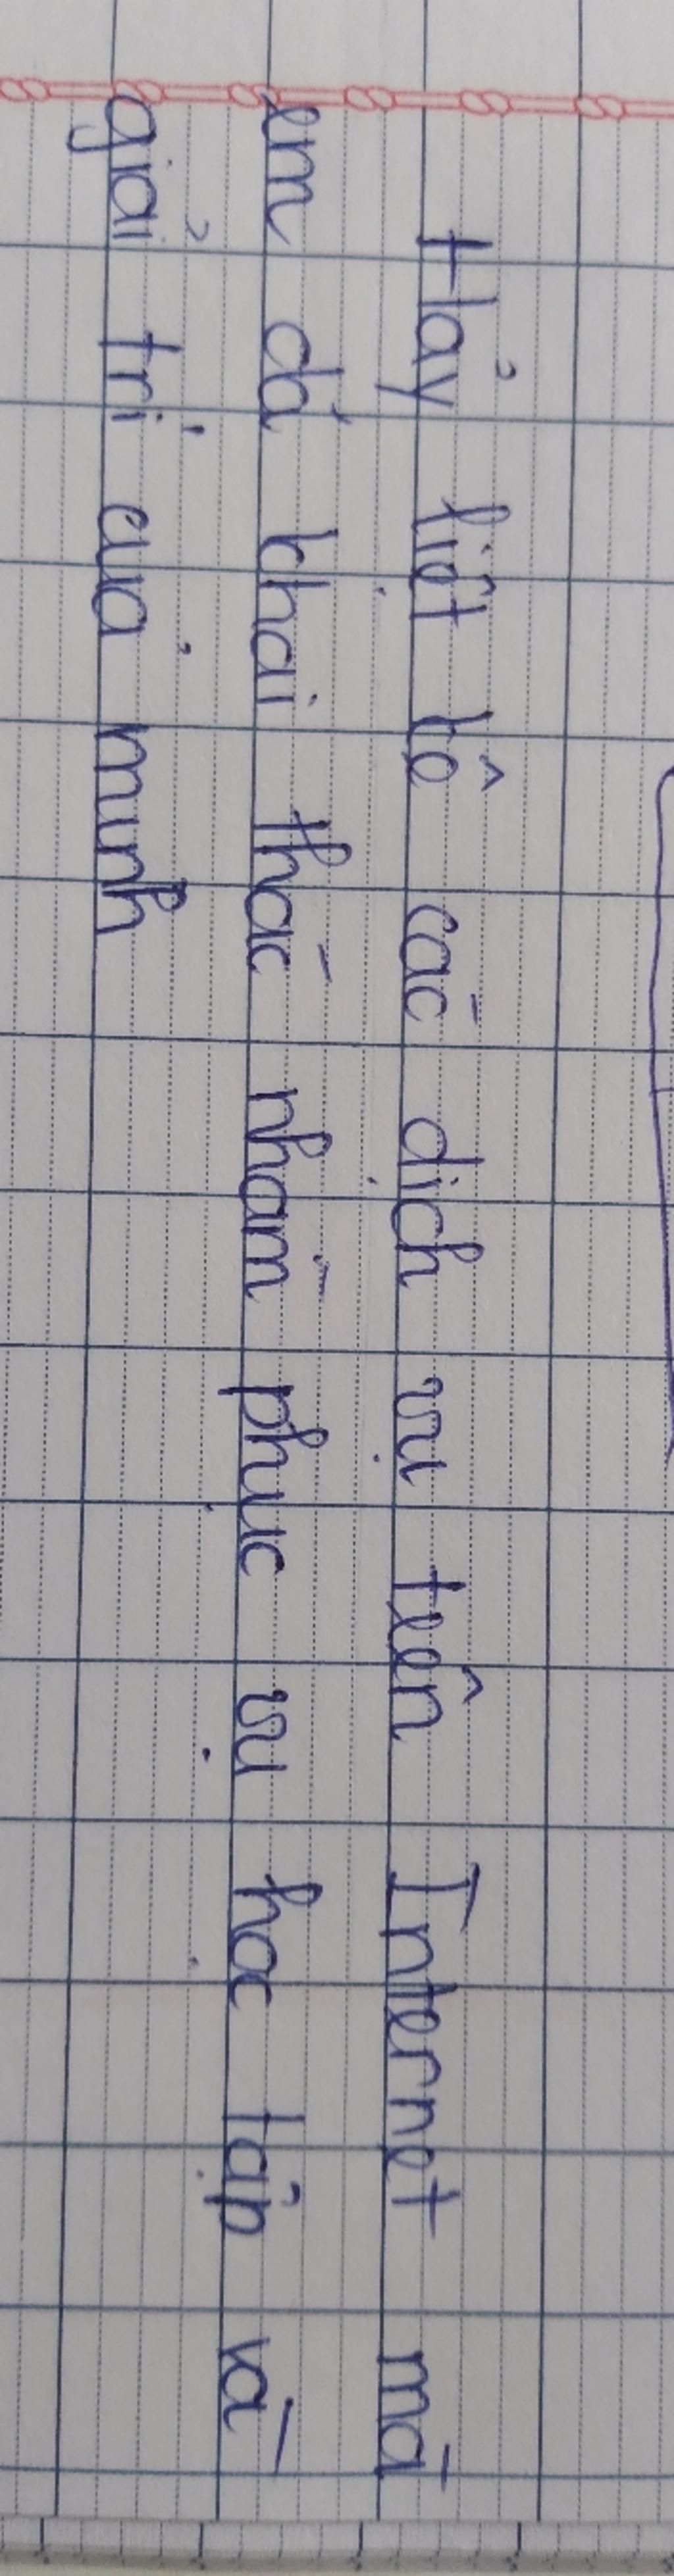 Hảy liệt kê các dịch vụ trên Internet mà
em đã khai thác nhằm phục vụ học tập và
giải trí của mình